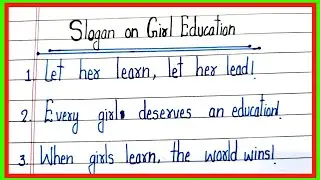 Slogan on Girl Education
1. Let her learn, let her lead!
2. Every girl deserves an education!
3. When girls learn, the world wins!